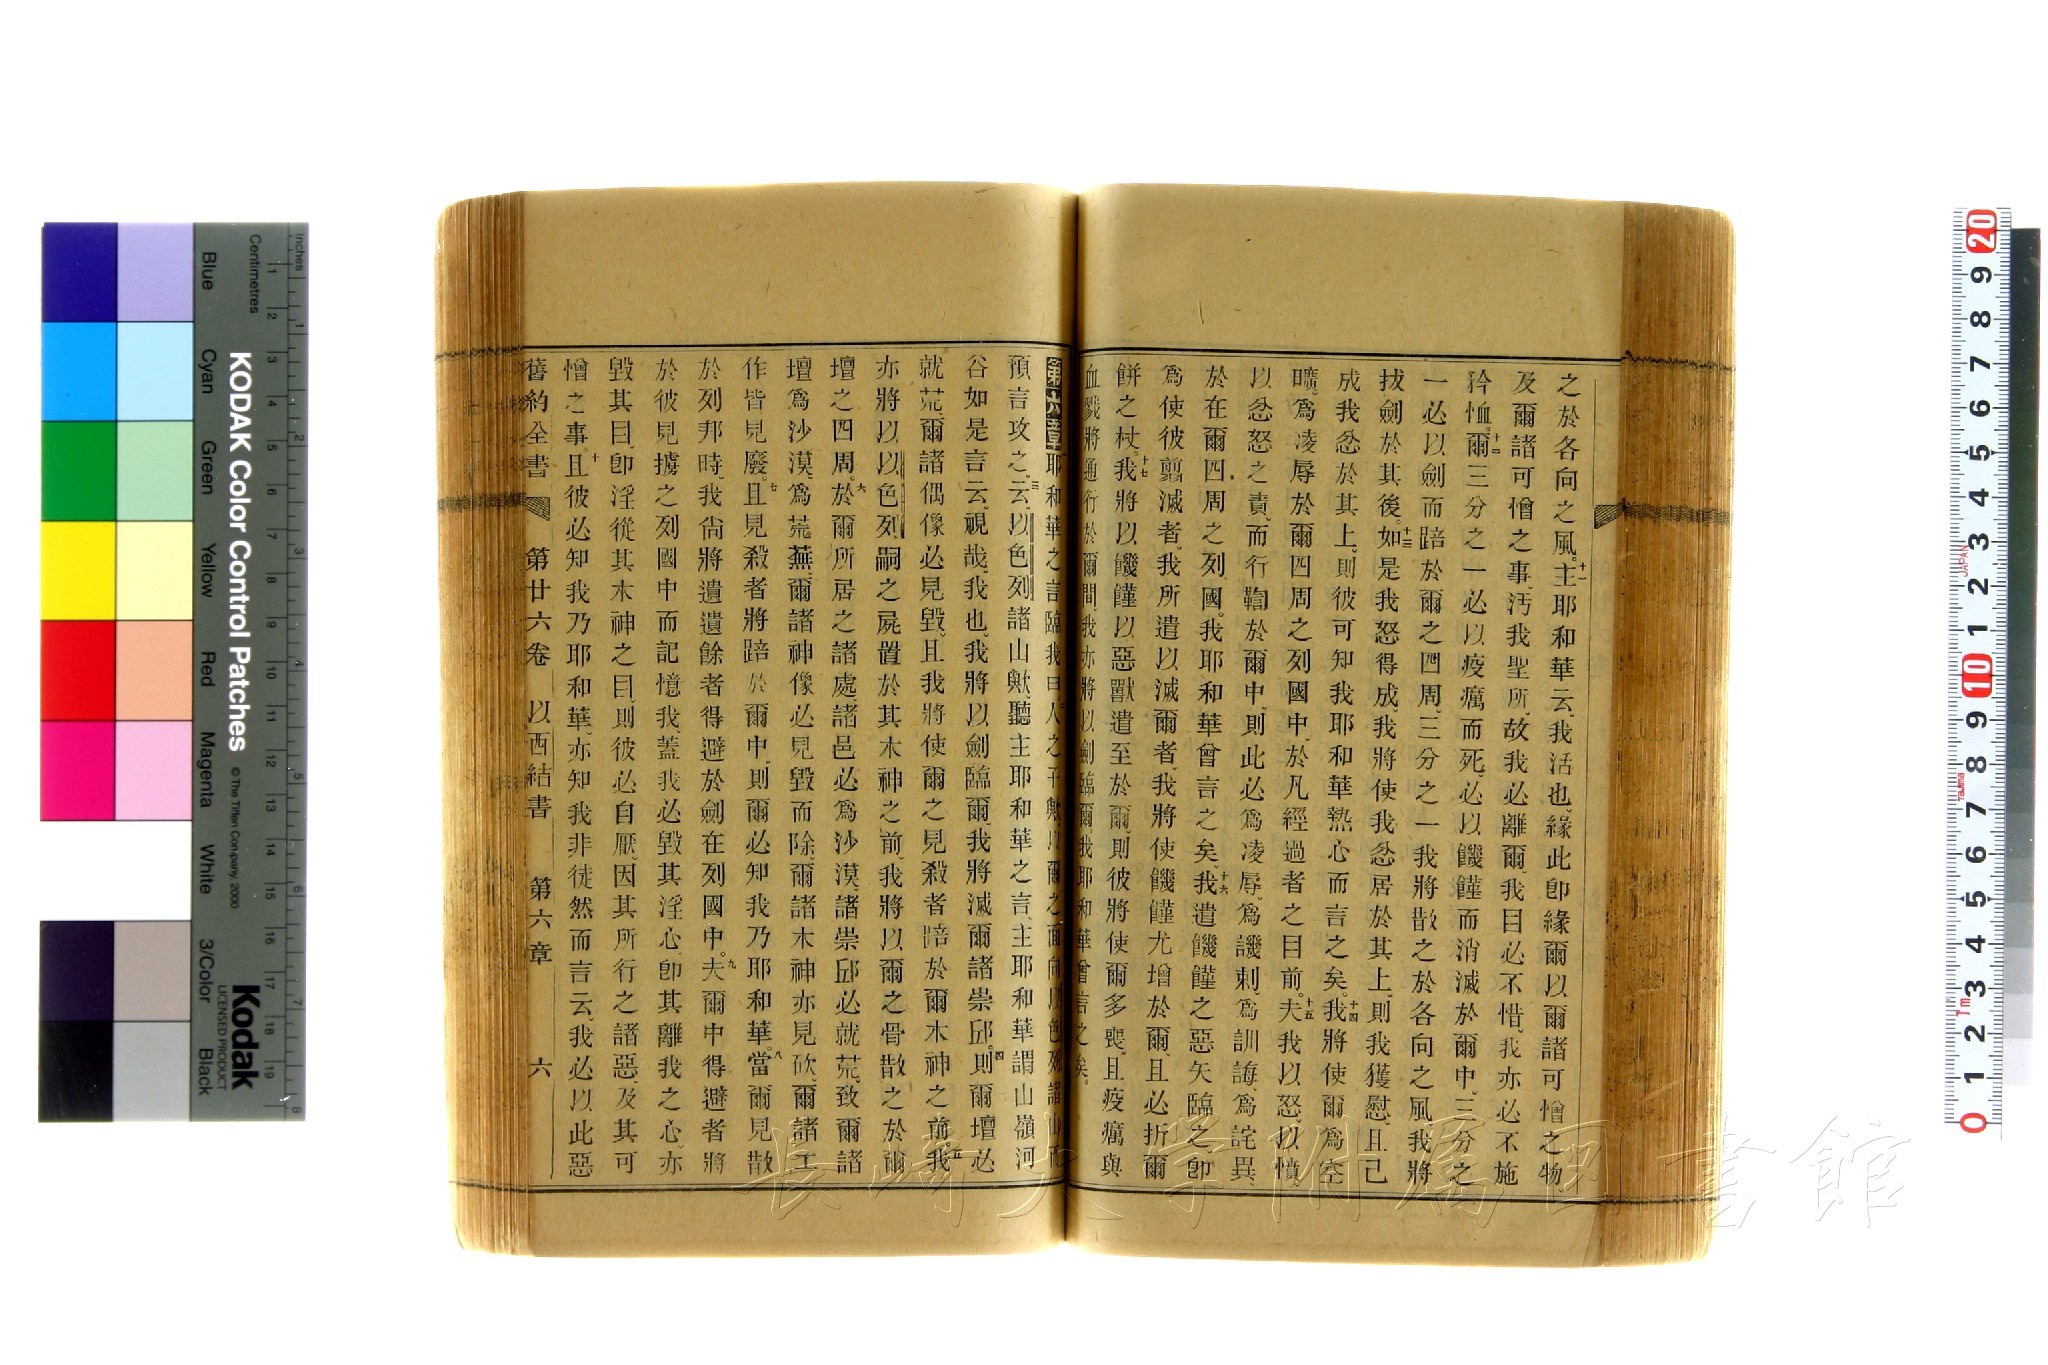 之於各向之風。十一主耶和華云、我活也、緣此卽緣爾以爾諸可憎之物
及爾諸可憎之事、汚我聖所、故我必離爾、我目必不惜、我亦必不施
矜恤。十二爾三分之一必以疫癘而死、必以饑饉而消滅於爾中、三分之
一必以劍而踣於爾之四周、三分之一我將散之於各向之風、我將
拔劍於其後。十三如是我怒得成、我將使我忿居於其上、則我獲慰、且己
成我忿於其上、則彼可知我耶和華熱心而言之矣。十四我將使爾爲空
曠、爲凌辱於爾四周之列國中、於凡經過者之目前。十五夫我以怒、以憤、
以忿怒之責、而行鞫於爾中、則此必爲凌辱、爲譏刺、爲訓誨、爲詫異、
於在爾四周之列國。我耶和華曾言之矣。十六我遣饑饉之惡矢臨之、卽
爲使彼翦滅者、我所遣以滅爾者、我將使饑饉尤增於爾、且必折爾
餅之杖。十七我將以饑饉以惡獸遣至於爾、則彼將使爾多喪、且疫癘與
血戮將通行於爾間、我亦將以劍臨爾、我耶和華曾言之矣。
第六章 耶和華之言臨我曰、人之子歟、以爾之面向以色列諸山而
預言攻之、三云、以色列諸山歟、聽主耶和華之言、主耶和華謂山嶺河
谷如是言云、視哉、我也、我將以劍臨爾、我將滅爾諸崇邱。四則爾壇必
就荒、爾諸偶像必見毀、且我將使爾之見殺者踣於爾木神之前。五我
亦將以以色列嗣之屍置於其木神之前、我將以爾之骨散之於爾
壇之四周。六於爾所居之諸處、諸邑必爲沙漠、諸崇邱必就荒、致爾諸
壇爲沙漠、爲荒蕪、爾諸神像必見毀而除、爾諸木神亦見砍、爾諸工
作皆見廢。七且見殺者將踣於爾中、則爾必知我乃耶和華。八當爾見散
於列邦時、我尙將遺遺餘者得避於劍在列國中。九夫爾中得避者將
於彼見擄之列國中而記憶我、蓋我必毀其淫心、卽其離我之心、亦
毀其目、卽淫從其木神之目、則彼必自厭、因其所行之諸惡、及其可
憎之事。十且彼必知我乃耶和華、亦知我非徒然而言云、我必以此惡
舊約全書 第廿六卷 以西結書 第六章 六
長崎大学附属図書館
KODAK Color Control Patches
©The Tiffen Company, 2000
Kodak
LICENSED PRODUCT
Inches
Centimetres
Blue
Cyan
Green
Yellow
Red
Magenta
White
3/Color
Black
1 2 3 4 5 6 7 8 9 10 11 12 13 14 15 16 17 18 19
1 2 3 4 5 6 7 8
20
9
8
7
6
5
4
3
JAPAN
2
1
10
9
8
Tajima
7
6
5
4
3
1m
2
1
0